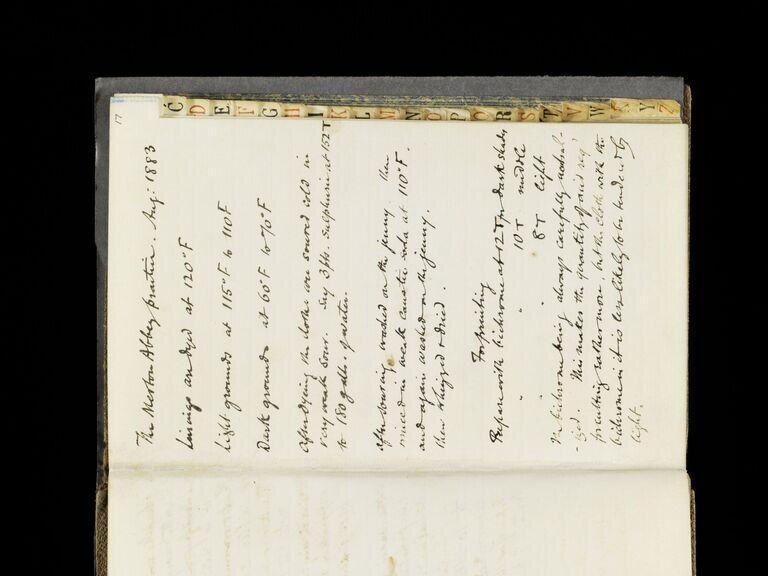 17
The Merton Abbey practice. Aug: 1883
Linings are dyed at 120°F
Light grounds at 115°F to 110F
Dark grounds at 60°F to 70°F
After dyeing the cloths are soured cold in
very weak sour. Say 3 pts. sulphuric at 152T
to 180 galls. of water.
After souring, washed on the jenny. then
in weak caustic soda at 110°F.
and again washed on the jenny.
then whizzed & dried.
For printing
Prepare with bichrome at 12T for dark shades
" " 10T middle
" " 8T light
The bichrome being always carefully neutral-
-ised. This makes the quantity of acid req'd
for cutting rather more, but the cloth with the
bichrome in it is less likely to be tendered by
light.
C D E F G H I K L M N O P Q R S T V W X Y Z